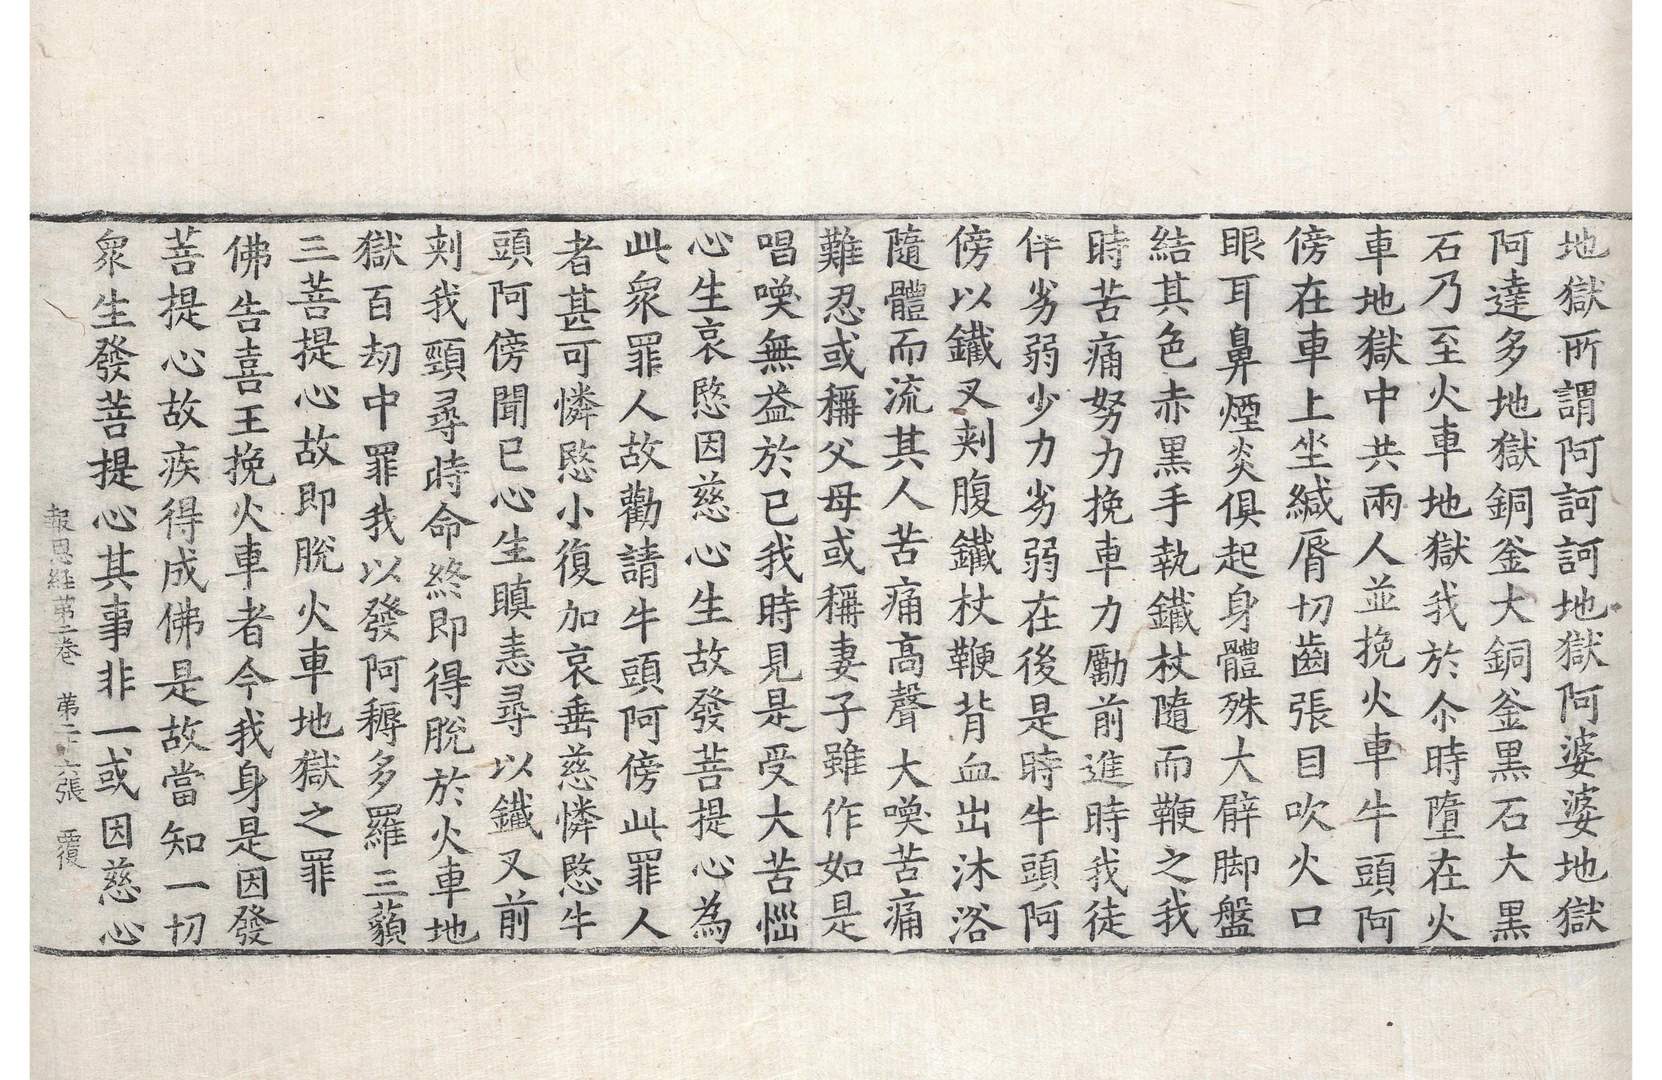 地獄所謂阿訶訶地獄阿婆婆地獄
阿達多地獄銅釜大銅釜黒石大黒
石乃至火車地獄我於尒時墮在火
車地獄中共兩人並挽火車牛頭阿
傍在車上坐緘脣切齒張目吹火口
眼耳鼻煙炎俱起身體殊大臂脚盤
結其色赤黒手執鐵杖隨而鞭之我
時苦痛努力挽車力勵前進時我徒
伴劣弱少力劣弱在後是時牛頭阿
傍以鐵叉刾腹鐵杖鞭背血出沐浴
隨體而流其人苦痛高聲大喚苦痛
難忍或稱父母或稱妻子雖作如是
唱喚無益於已我時見是受大苦惱
心生哀愍因慈心生故發菩提心為
此衆罪人故勸請牛頭阿傍此罪人
者甚可憐愍小復加哀垂慈憐愍牛
頭阿傍聞已心生瞋恚尋以鐵叉前
刾我頸尋時命終即得脫於火車地
獄百劫中罪我以發阿耨多羅三藐
三菩提心故即脫火車地獄之罪
佛告喜王挽火車者今我身是因發
菩提心故疾得成佛是故當知一切
衆生發菩提心其事非一或因慈心
報恩経第二卷 第二十六張 覆